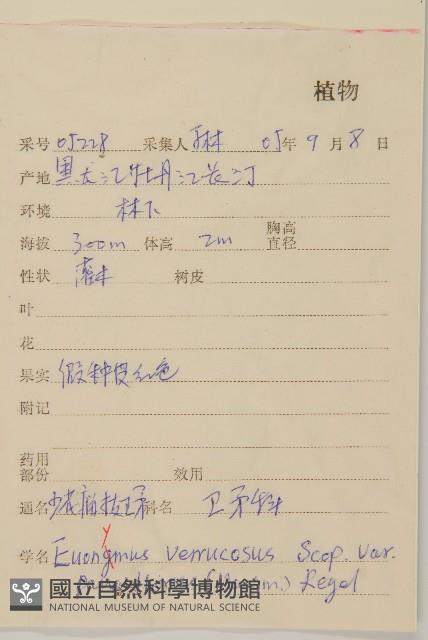 植物
采号 05228 采集人 林 05年 9月 8日
产地 黑龙江牡丹江长汀
环境 林下
海拔 300m 体高 2m 胸高直径
性状 灌木 树皮
叶
花
果实 假种皮红色
附记
药用部份 效用
通名 少花瘤枝卫矛 科名 卫矛科
学名 Euonymus verrucosus Scop. var.
Regel
國立自然科學博物館
NATIONAL MUSEUM OF NATURAL SCIENCE